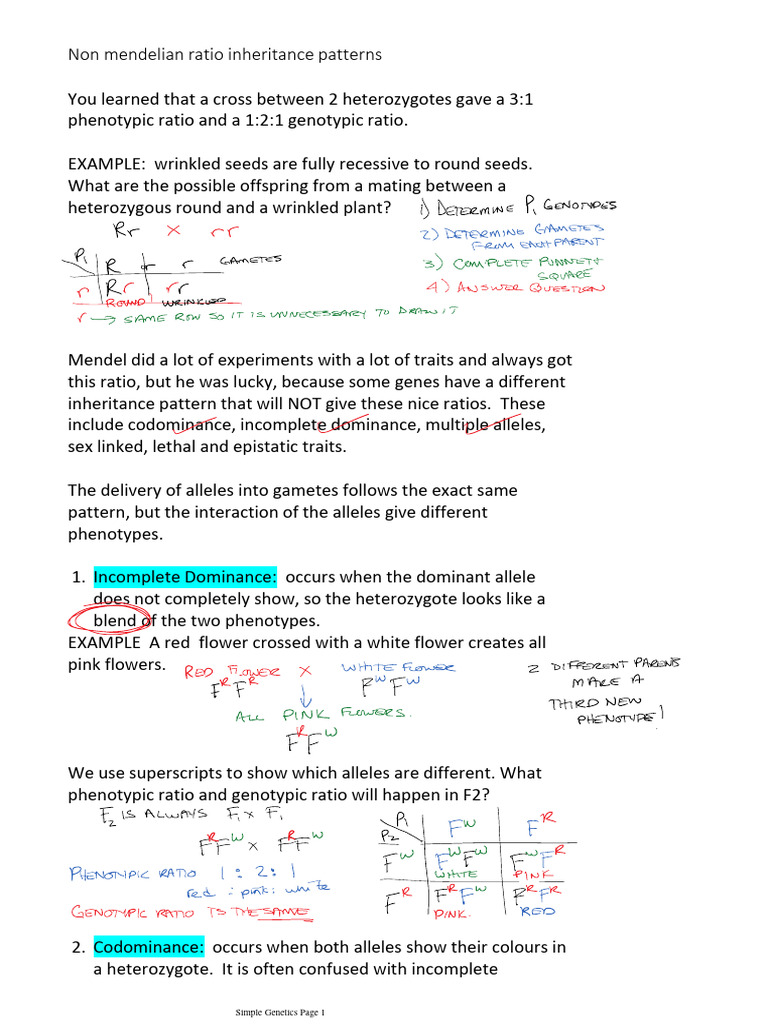 Non mendelian ratio inheritance patterns
You learned that a cross between 2 heterozygotes gave a 3:1
phenotypic ratio and a 1:2:1 genotypic ratio.
EXAMPLE:  wrinkled seeds are fully recessive to round seeds.
What are the possible offspring from a mating between a
heterozygous round and a wrinkled plant?
1) DETERMINE P1 GENOTYPES
Rr × rr
2) DETERMINE GAMETES
FROM EACH PARENT
P1 R r GAMETES
3) COMPLETE PUNNETT
SQUARE
r Rr rr
4) ANSWER QUESTION
ROUND WRINKLED
r → SAME ROW SO IT IS UNNECESSARY TO DRAW IT
Mendel did a lot of experiments with a lot of traits and always got
this ratio, but he was lucky, because some genes have a different
inheritance pattern that will NOT give these nice ratios.  These
include codominance, incomplete dominance, multiple alleles,
sex linked, lethal and epistatic traits.
The delivery of alleles into gametes follows the exact same
pattern, but the interaction of the alleles give different
phenotypes.
1. Incomplete Dominance:  occurs when the dominant allele
does not completely show, so the heterozygote looks like a
blend of the two phenotypes.
EXAMPLE  A red  flower crossed with a white flower creates all
pink flowers.
RED FLOWER × WHITE FLOWER
F^R F^R F^W F^W
ALL PINK FLOWERS.
F^R F^W
2 DIFFERENT PARENTS
MAKE A
THIRD NEW
PHENOTYPE!
We use superscripts to show which alleles are different. What
phenotypic ratio and genotypic ratio will happen in F2?
F2 IS ALWAYS F1 × F1
F^R F^W × F^R F^W
PHENOTYPIC RATIO 1 : 2 : 1
red : pink : white
GENOTYPIC RATIO IS THE SAME
P1 P2 F^W F^R
F^W F^W F^W F^W F^R
WHITE PINK
F^R F^R F^W F^R F^R
PINK. RED
2. Codominance:  occurs when both alleles show their colours in
a heterozygote.  It is often confused with incomplete
Simple Genetics Page 1